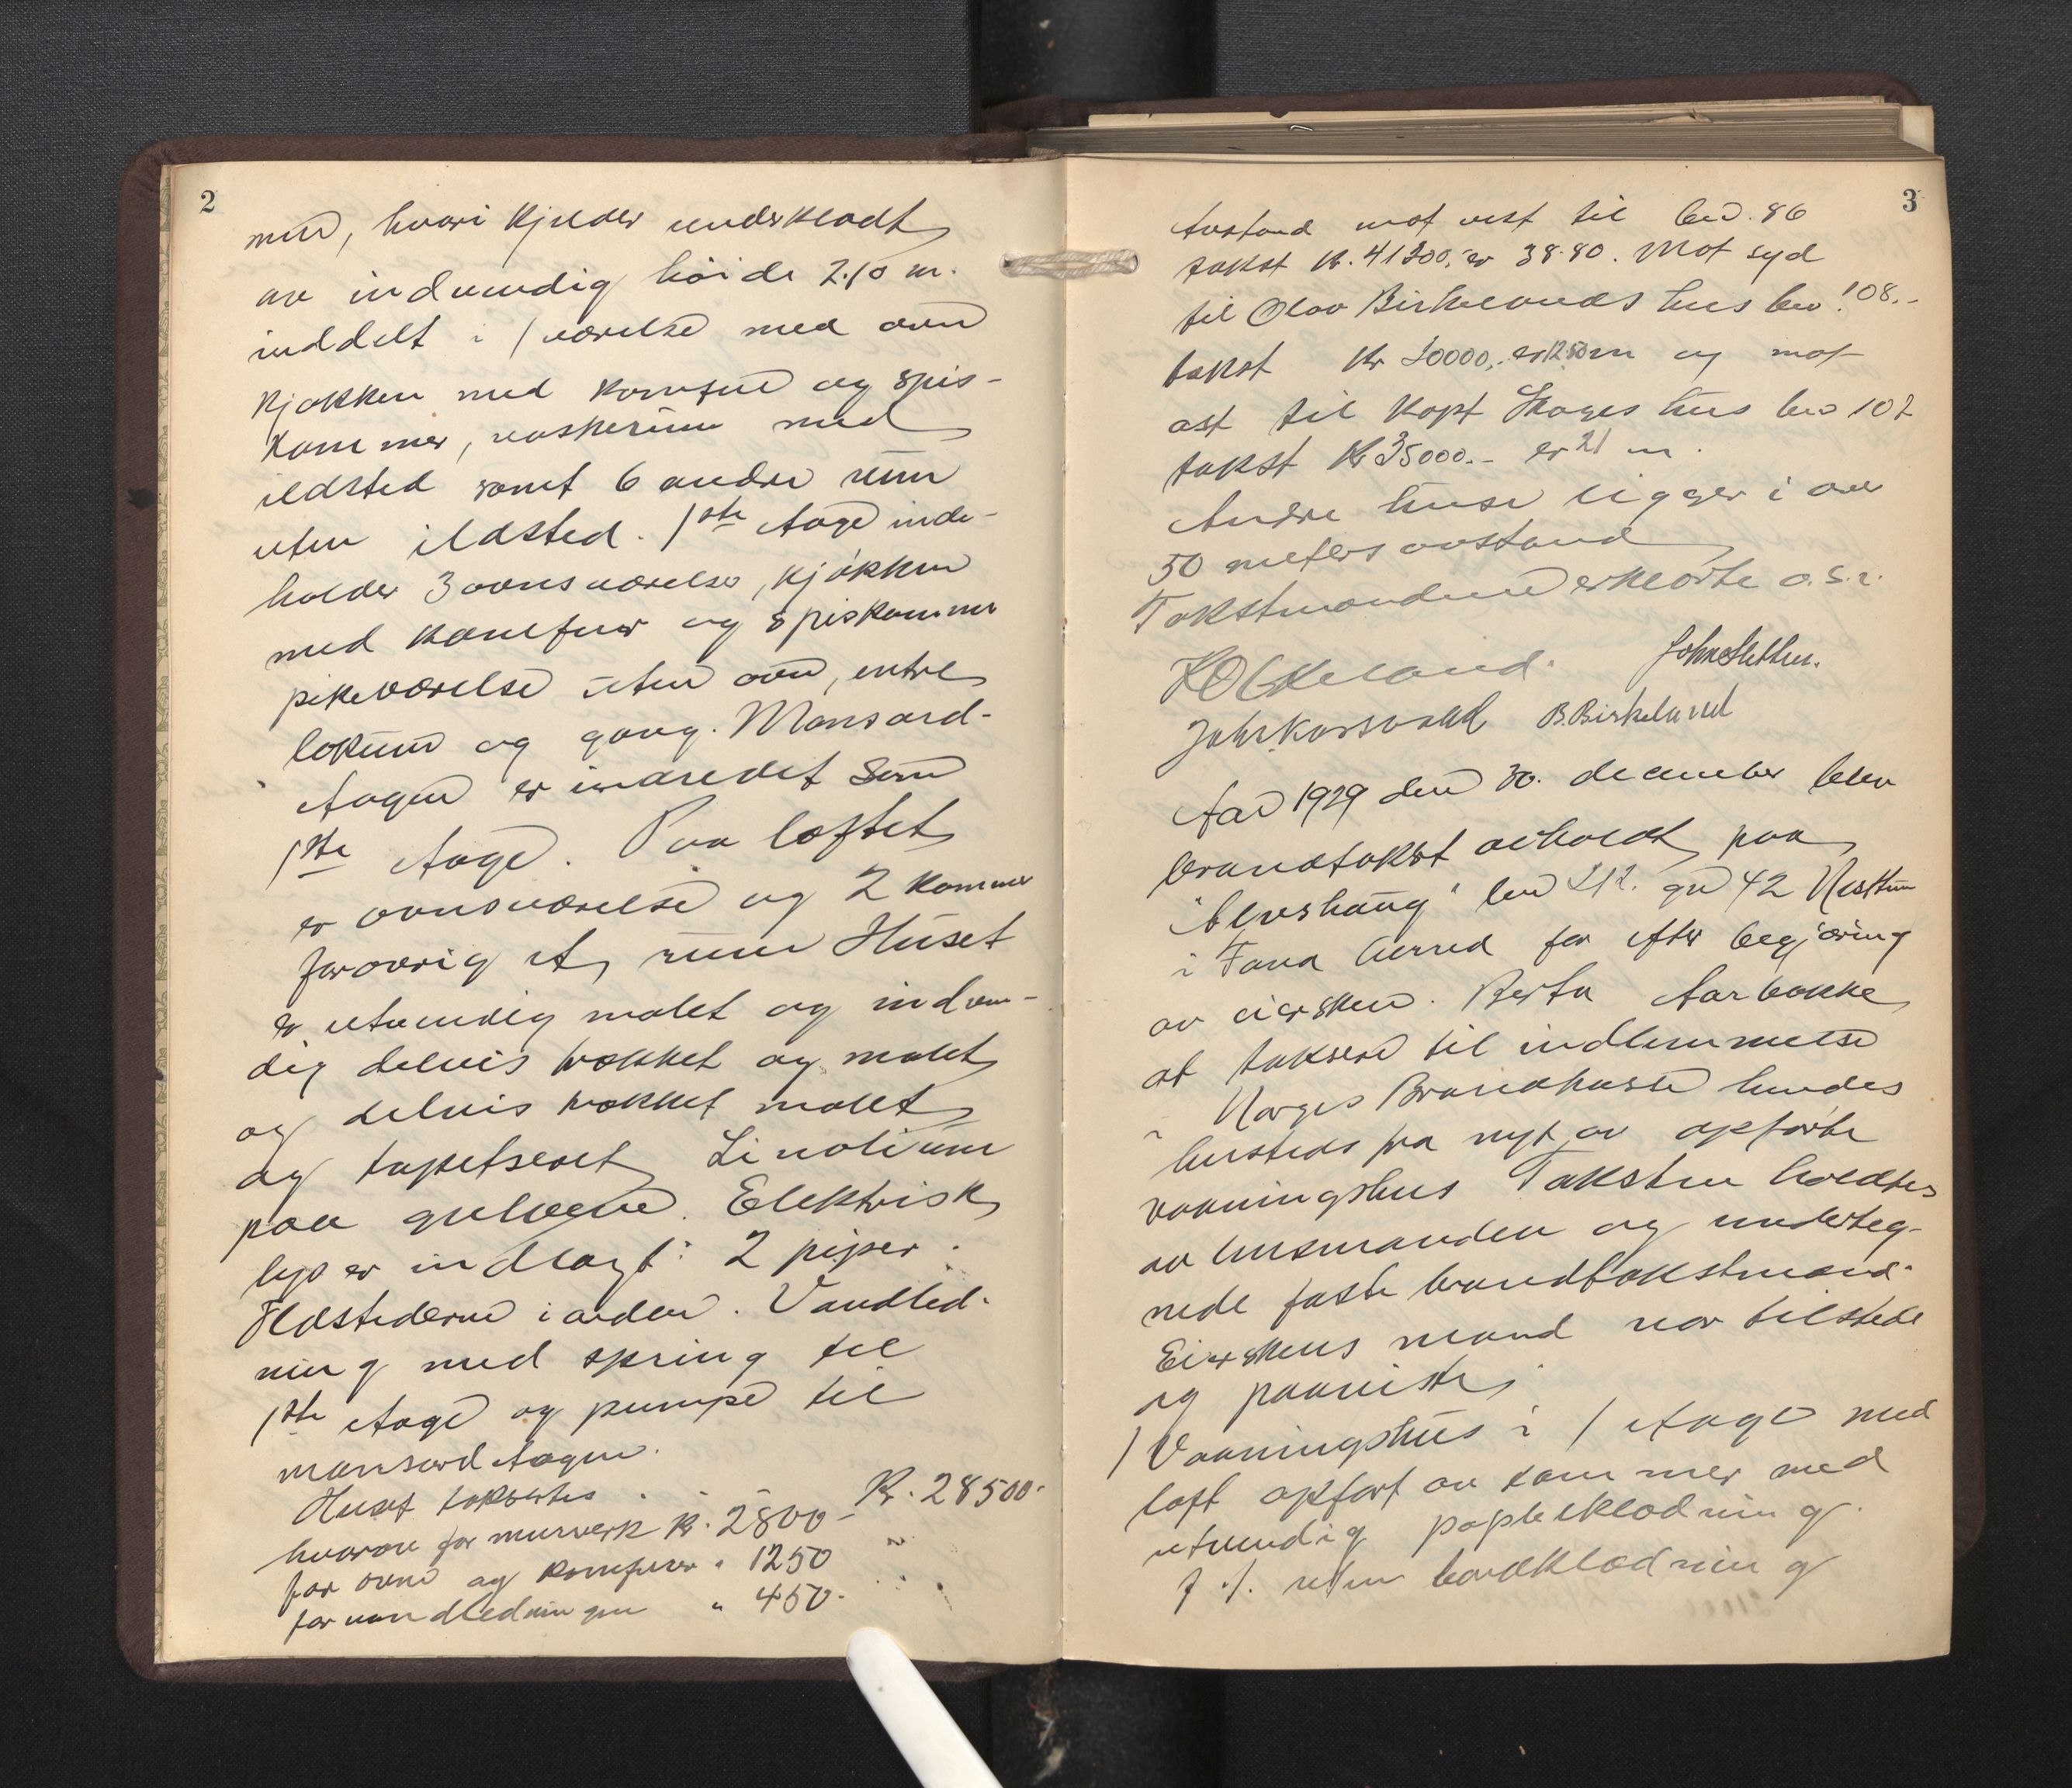 2
mur, hvori kjelder underkladt
av indvendig høide 2.10 m.
inddelt i 1 værelse med ovn
kjøkken med komfur og spis-
kammer, vaskerum med
ildsted samt 6 andre rum
uten ildsted. 1ste etage inde-
holder 3 ovnsværelser, kjøkken
med komfur og spiskammer
pikeværelse uten ovn, entre
lokum og gang. Mansard-
etagen er inredet som
1ste etage. Paa loftet
er ovnsværelse og 2 kammer
forøvrig et rum Huset
er utvendig malet og indven-
dig delvis trekket og malet
og delvis trekket malet
og tapetseret Linolium
paa gulvene. Elektrisk
lys er indlagt. 2 piper.
Ildstederne i orden. Vandled-
ning med spring til
1ste etage og pumpe til
mansardetagen.
Huset takseres Kr. 28500.-
hvorav for murverk kr. 2800-
for ovne og komfurer " 1250
for vandledningen " 450.-
3
Avstand mot vest til bno. 86
takst kr. 41200,- er 38.80. Mot syd
til Olav Birkelands hus bno 108.-
takst kr 20000,- er 12.50 m og mot
øst til kapt Skages hus bno 107
takst kr 35000.- er 21 m.
Andre huse ligger i over
50 meters avstand
Takstmændene erklærte o.s.v.
K O Eikeland. John Sletten.
Joh. Korsvold B. Birkeland
Aar 1929 den 30. december blev
brandtakst avholdt paa
"Elvshaug" bno 212. gno 42 Nesttun
i Fana herred for efter begjæring
av eiersken Berta Aarbakke
at taksere til indlemmelse
i Norges Brandkasse hendes
hersteds fra nyt av opførte
vaaningshus Taksten holdtes
av lensmanden og underteg-
nede faste brandtakstmænd.
Eierskens mand var tilstede
og paaviste
1 Vaaningshus i 1 etage med
loft opført av tømmer med
utvendig papbeklædning
f. t. uten bordklædning